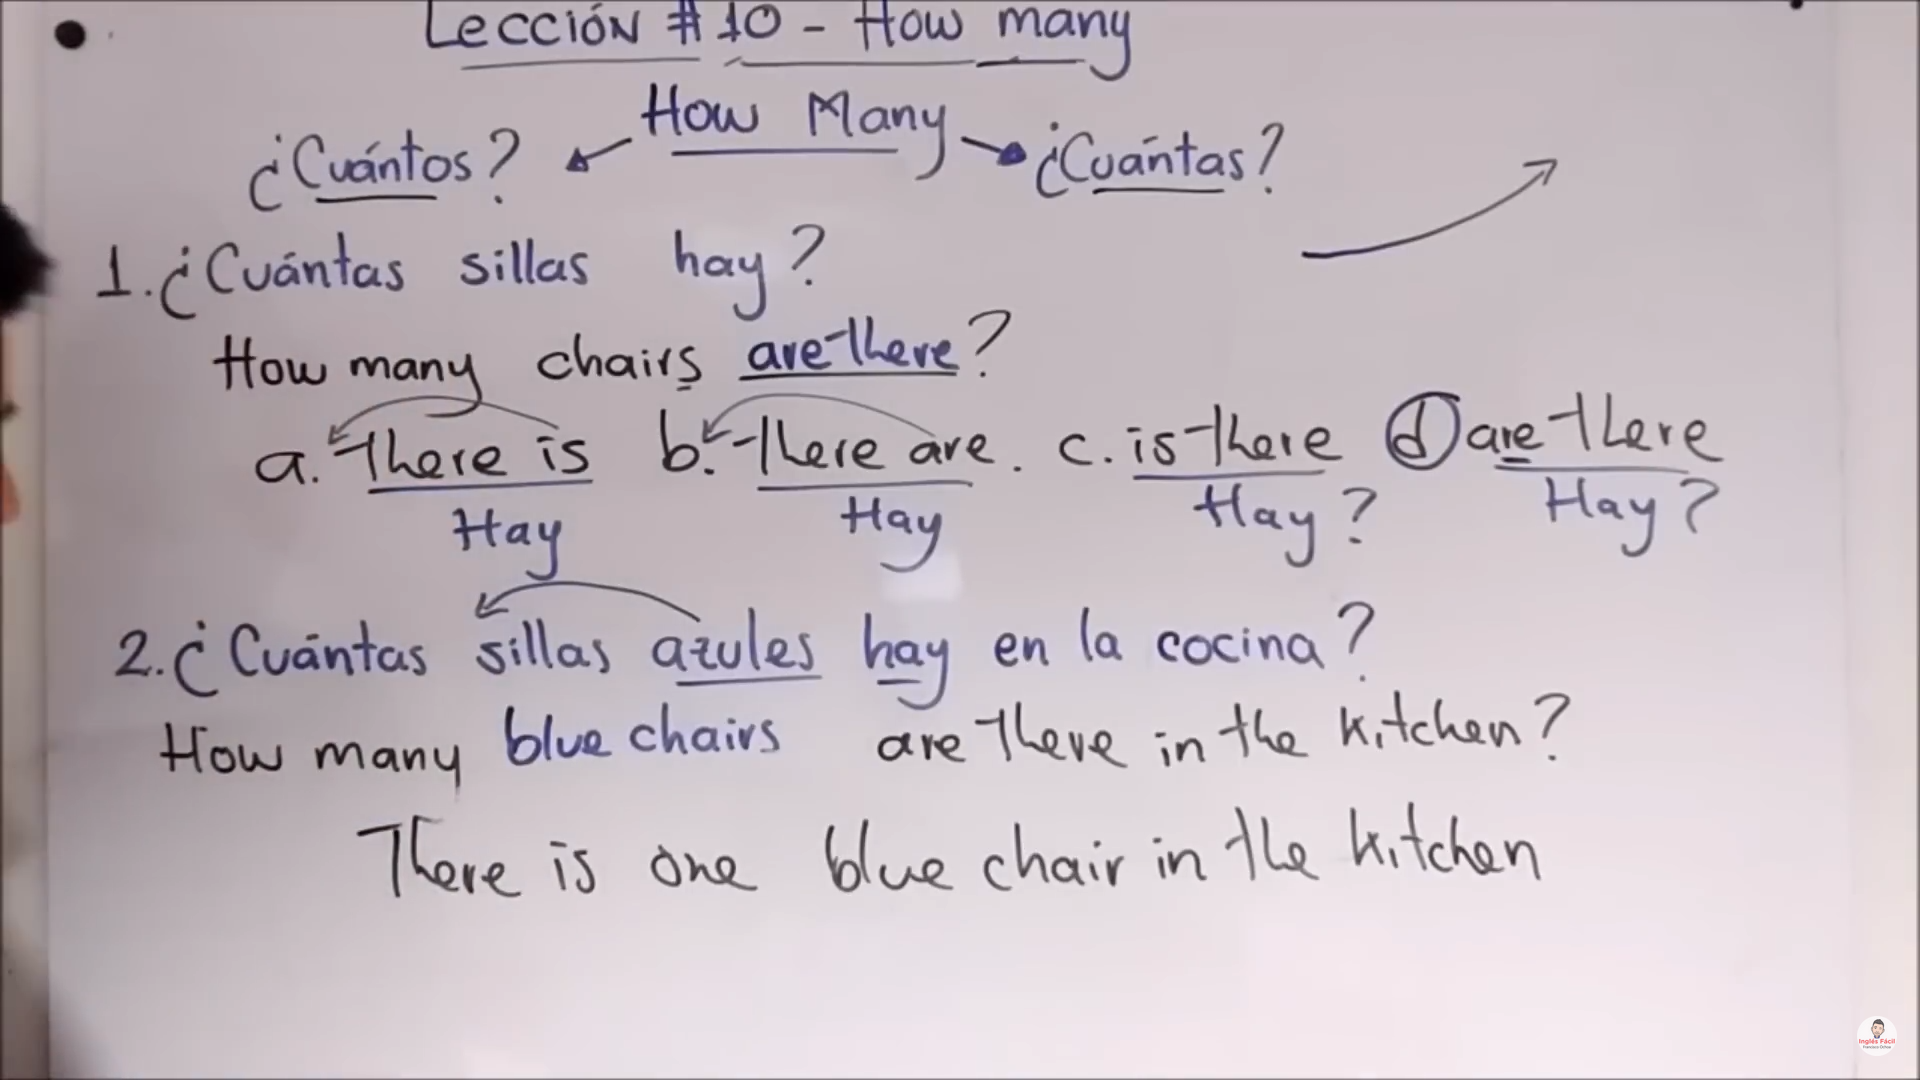 Lección #10 - How many
How Many
¿Cuántos? ¿Cuántas?
1. ¿Cuántas sillas hay?
How many chairs are there?
a. There is b. There are. c. is there d are there
Hay Hay Hay? Hay?
2. ¿Cuántas sillas azules hay en la cocina?
How many blue chairs are there in the kitchen?
There is one blue chair in the kitchen
Inglés Fácil